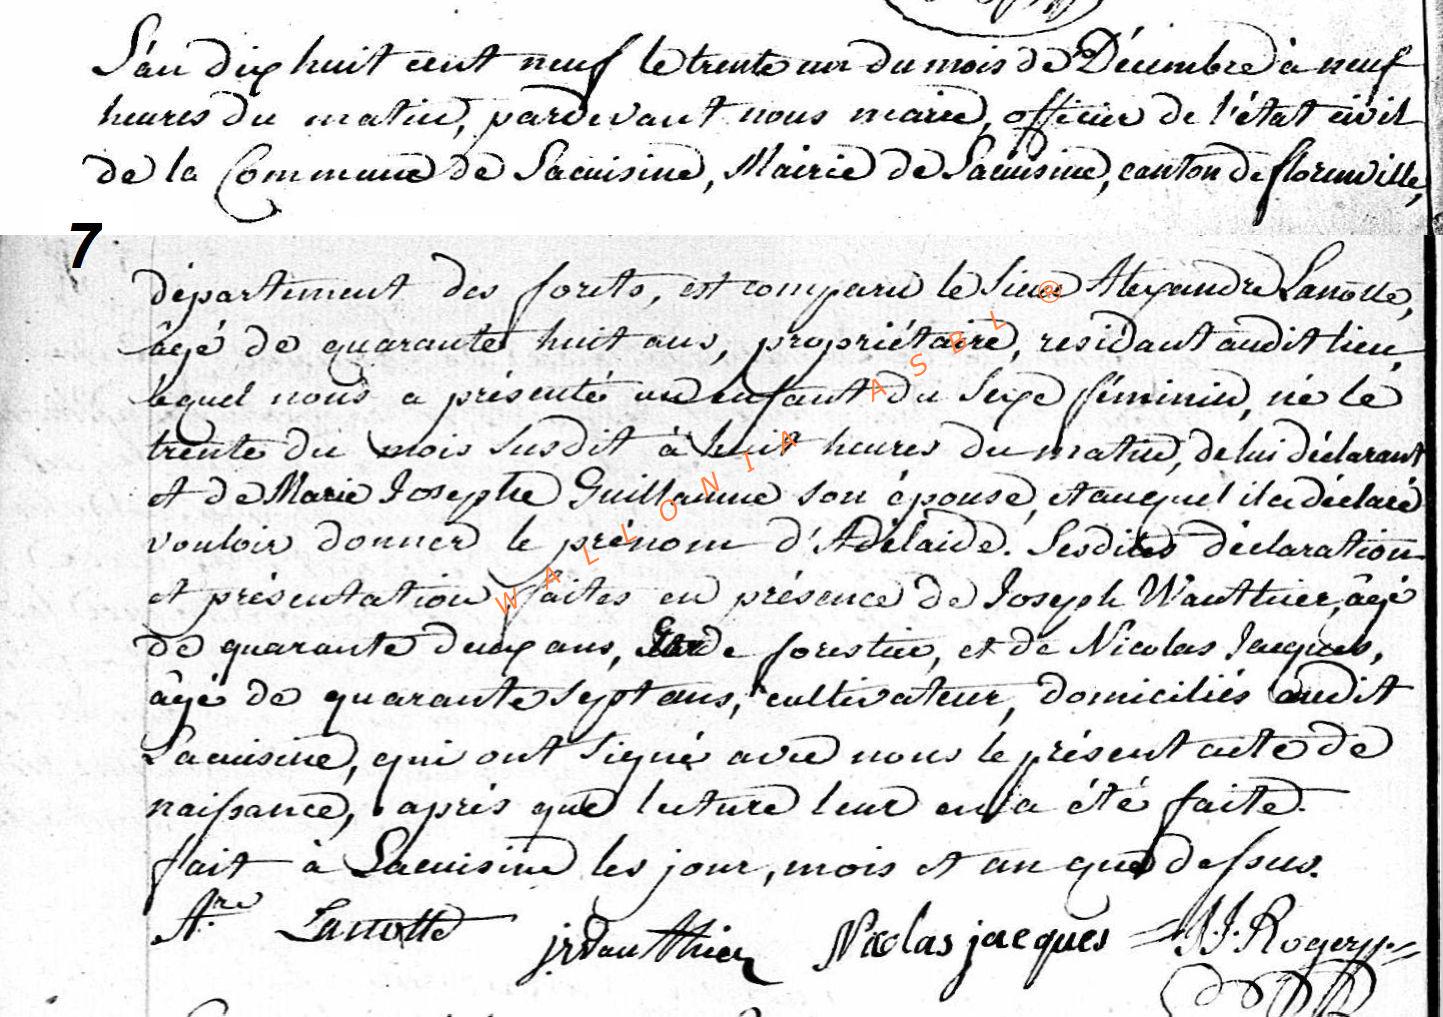 L'an dix huit cent neuf le trente un du mois de Décembre à neuf
heures du matin, pardevant nous maire, officier de l'état civil
de la Commune de Lacuisine, Mairie de Lacuisine, canton de florenville,
7
département des forêts, est comparu le Sieur Alexandre Lanotte,
âgé de quarante huit ans, propriétaire, residant audit lieu
lequel nous a présenté un enfant du Sexe féminin, né le
trente du mois susdit à huit heures du matin, de lui déclarant
et de Marie Josephe Guillaume son épouse, et auquel il a déclaré
vouloir donner le prénom d'Adélaïde. Lesdites déclaration
et présentation faites en présence de Joseph Wauthier, âgé
de quarante deux ans, Garde forestier, et de Nicolas Jacques,
âgé de quarante sept ans, cultivateur, domiciliés audit
Lacuisine, qui ont signé avec nous le présent acte de
naissance, après que lecture leur en a été faite.
fait à Lacuisine les jour, mois et an que dessus.
Are Lanotte jWauthier Nicolas jacques J.J. Rogery
WALLONIA ASBL ®